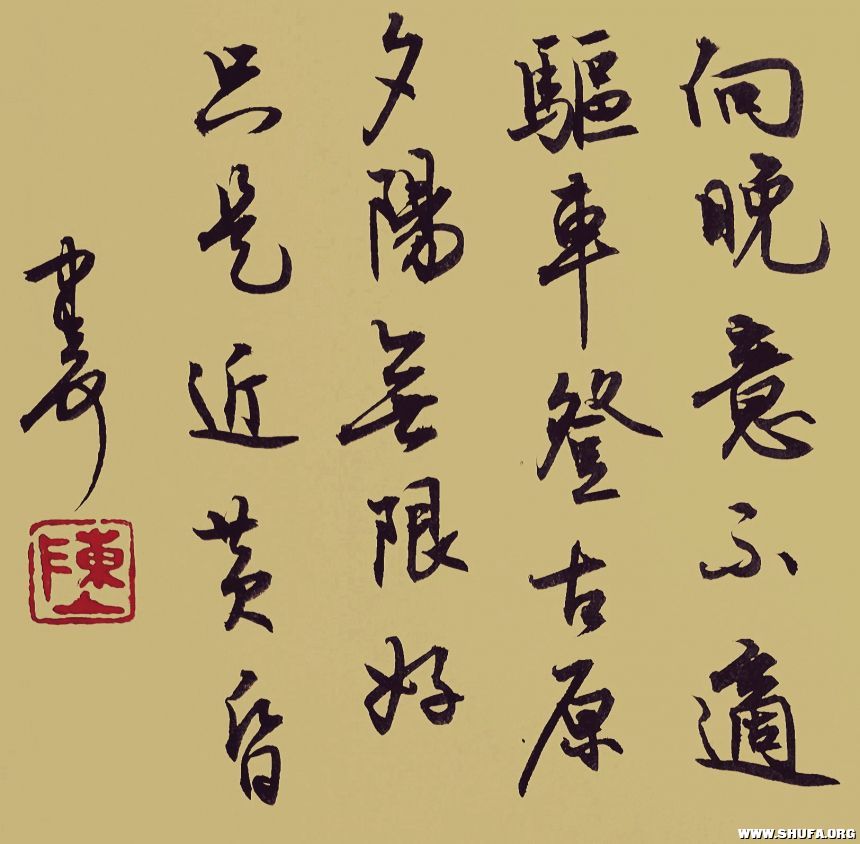 向晚意不適
驅車登古原
夕陽無限好
只是近黄昏
書
陳
WWW.SHUFA.ORG